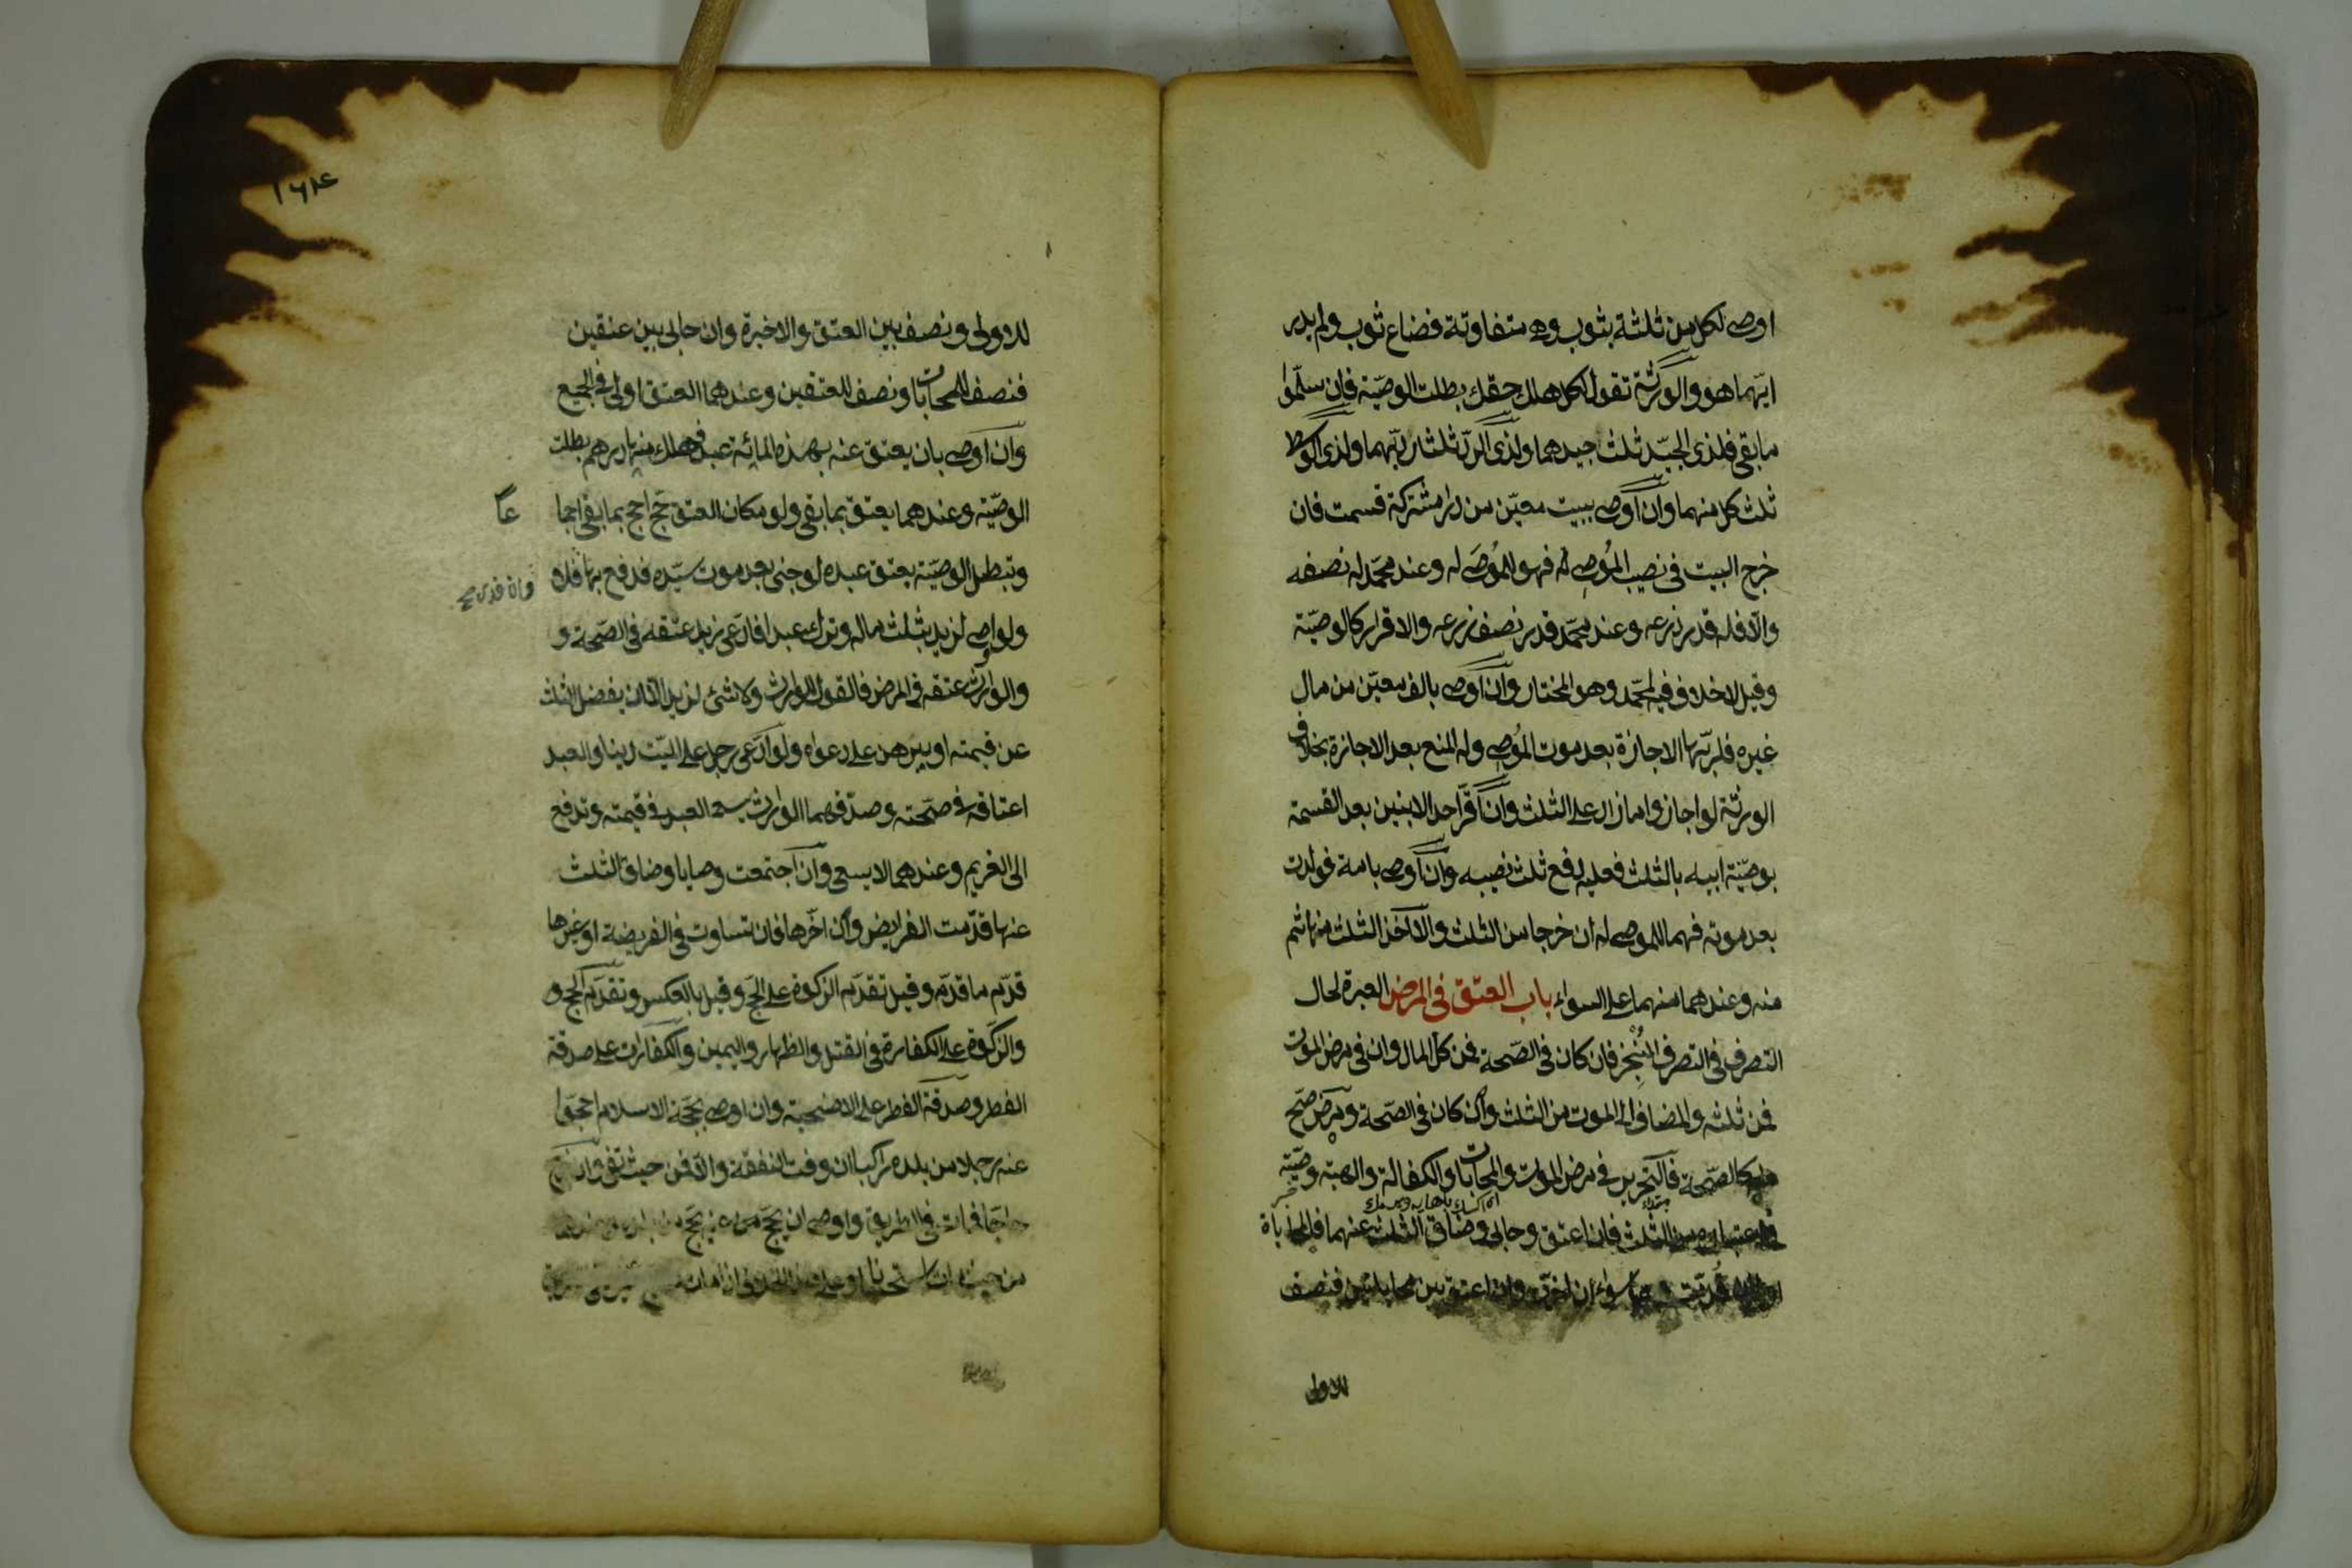 اوصى لكل من ثلثة بثوب وهى متفاوتة فضاع ثوب ولم يدر
ايهما هو والورثة تقول لكل هلك حقك بطلت الوصيّة فان سلّموا
ما بقى فلذى الجيّد ثلثا جيدهما ولذى الردّ ثلثا رديّهما ولذى الوسط
ثلث كل منهما وان اوصى ببيت معيّن من دار مشتركة قسمت فان
خرج البيت فى نصيب المُوصِى له فهو للمُوصَى له وعند محمّد له نصفه
والّا فله قدر ذرعه وعند محمّد قدر نصف ذرعه والاقرار كالوصيّة
وقيل لا خلاف فيه لمحمّد وهو المختار وان اوصى بالف معيّن من مال
غيره فلربّها الاجازة بعد موت المُوصِى وله المنع بعد الاجازة بخلاف
الورثة لو اجازوا ما زاد على الثلث وان اقرّ احد الابنين بعد القسمة
بوصيّة ابيه بالثلث فعليه دفع ثلث نصيبه وان اوصى بامة فولدت
بعد موته فهما للموصى له ان خرجا من الثلث والّا اخذ الثلث منها ثم
منه وعندهما منهما على السواء باب العتق فى المرض العبرة لحال
التصرف فى التصرف المُنْجِز فان كان فى الصّحة فمن كل المال وان فى مرض الموت
فمن ثلثه والمضاف الى الموت من الثلث وان كان فى الصّحة ومرض صحّ
منه كالصّحة فالتحرير فى مرض الموت والمحابات والكفالة والهبة وصيّة
فى اعتباره من الثلث فان اعتق وحابى وضاق الثلث عنهما فالمحاباة
اولى ان قدّمت وهما سواء ان اخرت وان اعتق بين محابتين فنصف
للاولى
١٦٤
للاولى ونصف بين العتق والاخيرة وان حابى بين عتقين
فنصف للمحابات ونصف للعتقين وعندهما العتق اولى فى الجميع
وان اوصى بان يعتق عنه بهذه المائة عبد فهلك منها درهم بطلت
الوصيّة وعندهما يعتق بما بقى ولو مكان العتق حجّ احج بما بقى اجما
عًا
وتبطل الوصيّة بعتق عبده لو جنى بعد موت سيّده فدفع بها
وان فدى فلا
ولو اوصى لزيد بثلث ماله وترك عبدا فادّعى زيد عتقه فى الصّحة و
والوارث عتقه فى المرض فالقول للوارث ولا شئ لزيد الّا ان يفضل الثلث
عن قيمته او يبرهن على دعواه ولو ادّعى رجل على الميّت دينا والعبد
اعتاقه فى صحّته وصدّقهما الوارث يسعى العبد فى قيمته وتدفع
الى الغريم وعندهما لا يسعى وان اجتمعت وصايا وضاق الثلث
عنها قدّمت الفرايض وان اخّرها فان تساوت فى الفريضة او غيرها
قدّم ما قدّمه وقيل تقدّم الزكوة على الحجّ وقيل بالعكس وتقدّم الحج و
والزكوة على الكفارة فى القتل والظهار واليمين والكفارات على صدقة
الفطر وصدقة الفطر على الاضحية وان اوصى بحجّة الاسلام احجّوا
عنه رجلا من بلده راكبا ان وفت النفقة والّا فمن حيث تفى وان خرج
حاجّا فمات فى الطريق واوصى ان يحجّ عنه يحجّ من بلده وعندهما
من حيث مات استحسانا وعلى هذا الخلاف اذا مات